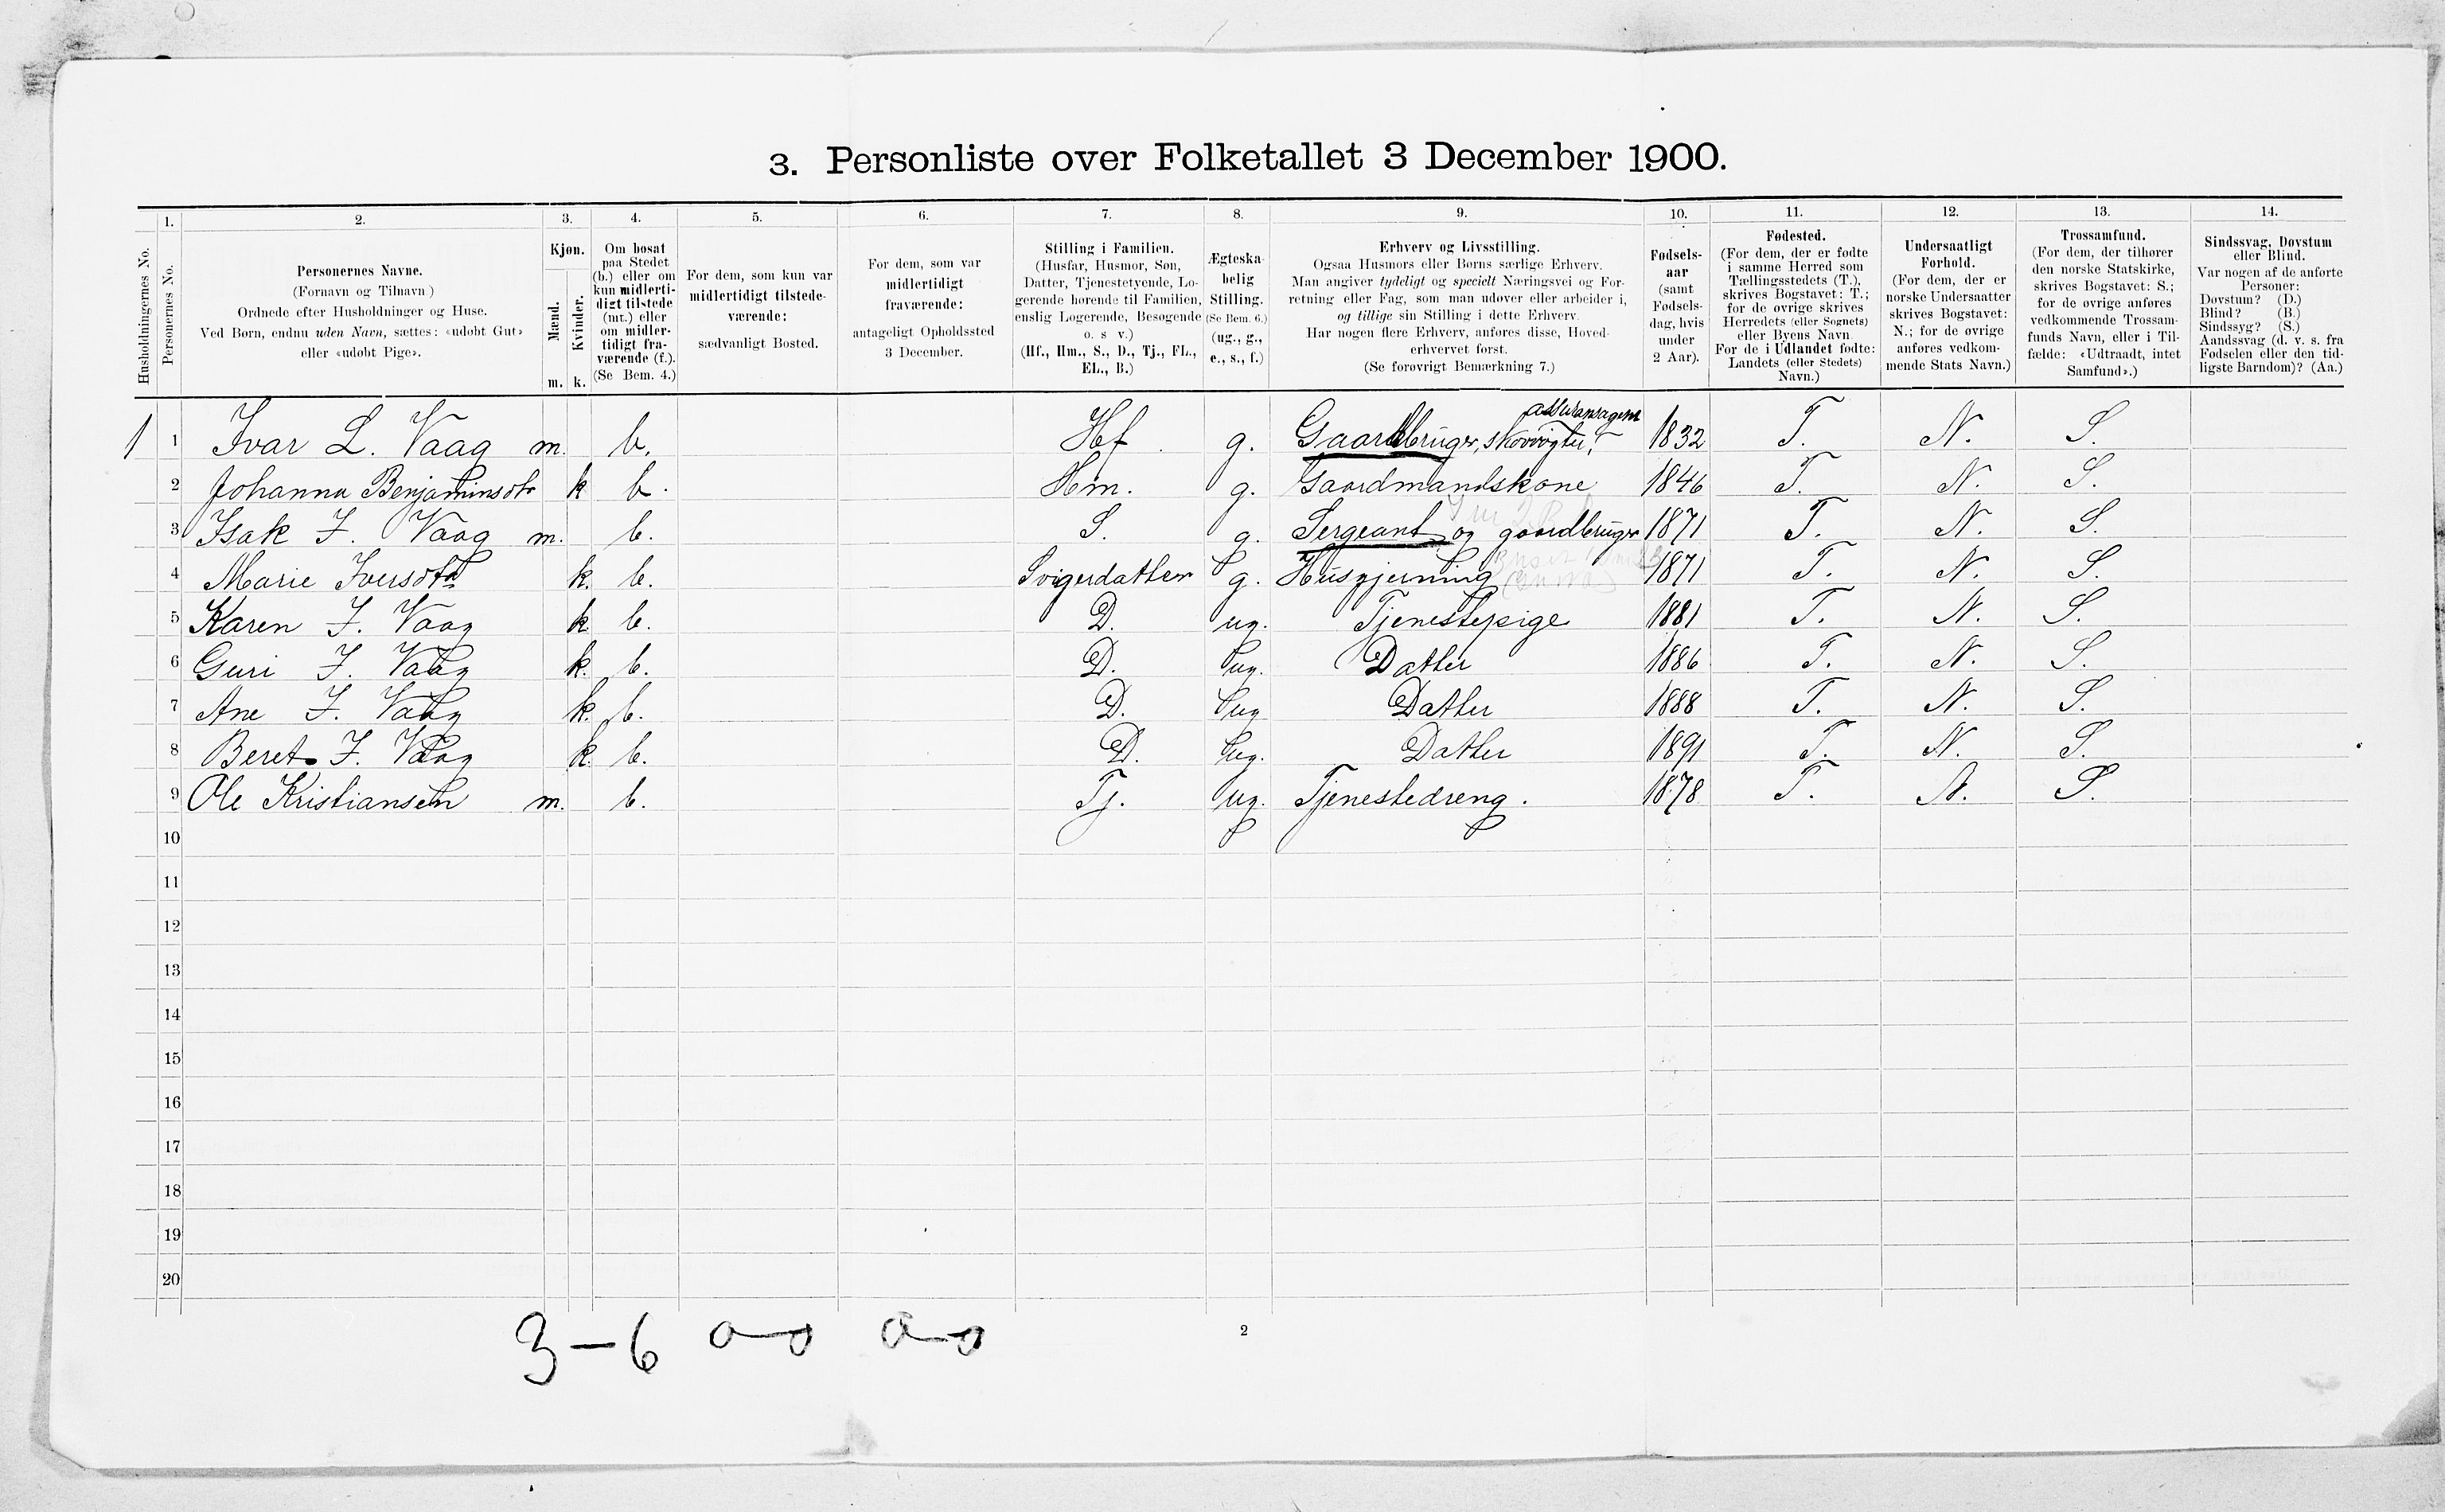 3. Personliste over Folketallet 3 December 1900.
Husholdningernes No.
1.
Personernes No.
2.
Personernes Navne.
(Fornavn og Tilnavn.)
Ordnede efter Husholdninger og Huse.
Ved Børn, endnu uden Navn, sættes: «udøbt Gut»
eller «udøbt Pige».
3.
Kjøn.
Mænd.
Kvinder.
m. k.
4.
Om bosat
paa Stedet
(b.) eller om
kun midlerti-
digt tilstede
(mt.) eller
om midler-
tidigt fra-
værende (f.).
(Se Bem. 4.)
5.
For dem, som kun var
midlertidigt tilstede-
værende:
sædvanligt Bosted.
6.
For dem, som var
midlertidigt
fraværende:
antageligt Opholdssted
3 December.
7.
Stilling i Familien.
(Husfar, Husmor, Søn,
Datter, Tjenestetyende, Lo-
gerende hørende til Familien,
enslig Logerende, Besøgende
o. s. v.)
(Hf., Hm., S., D., Tj., FL.,
EL., B.)
8.
Ægteska-
belig
Stilling.
(Se Bem. 6.)
(ug., g.,
e., s., f.)
9.
Erhverv og Livsstilling.
Ogsaa Husmors eller Børns særlige Erhverv.
Man angiver tydeligt og specielt Næringsvei og For-
retning eller Fag, som man udøver eller arbeider i,
og tillige sin Stilling i dette Erhverv.
Har nogen flere Erhverv, anføres disse, Hoved-
erhvervet først.
(Se forøvrigt Bemærkning 7.)
10.
Fødsels-
aar
(samt
Fødsels-
dag, hvis
under
2 Aar).
11.
Fødested.
(For dem, der er fødte
i samme Herred som
Tællingsstedets (T.),
skrives Bogstavet: T.;
for de øvrige skrives
Herredets (eller Sognets)
eller Byens Navn.
For de i Udlandet fødte:
Landets (eller Stedets)
Navn.)
12.
Undersaatligt
Forhold.
(For dem, der er
norske Undersaatter
skrives Bogstavet:
N.; for de øvrige
anføres vedkom-
mende Stats Navn.)
13.
Trossamfund.
(For dem, der tilhører
den norske Statskirke,
skrives Bogstavet: S.;
for de øvrige anføres
vedkommende Trossam-
funds Navn, eller i Til-
fælde: «Udtraadt, intet
Samfund».)
14.
Sindssvag, Døvstum
eller Blind.
Var nogen af de anførte
Personer:
Døvstum? (D.)
Blind? (B.)
Sindssyg? (S.)
Aandssvag (d. v. s. fra
Fødselen eller den tid-
ligste Barndom)? (Aa.)
1 1 Ivar L. Vaag m. b. Hf. g. Gaardbruger, skovvogter, assuransagent 1832 T. N. S.
2 Johanna Benjaminsdtr k b. Hm. g. Gaardmandskone 1846 T. N. S.
3 Isak I. Vaag m. b. S. g. Sergeant og gaardbruger 1871 T. N. S.
4 Marie Iversdtr k. b. Svigerdatter g. Husgjerning 1871 T. N. S.
5 Karen I. Vaag k. b. D. ug. Tjenestepige 1881 T. N. S.
6 Guri I. Vaag k. b. D. ug. Datter 1886 T. N. S.
7 Ane I. Vaag k. b. D. ug Datter 1888 T. N. S.
8 Beret I. Vaag k. b. D. ug. Datter 1891 T. N. S.
9 Ole Kristiansen m. b. Tj. ug. Tjenestedreng. 1878 T. N. S.
10
11
12
13
14
15
16
17
18
19
20
3-6 0-0 0-0
2